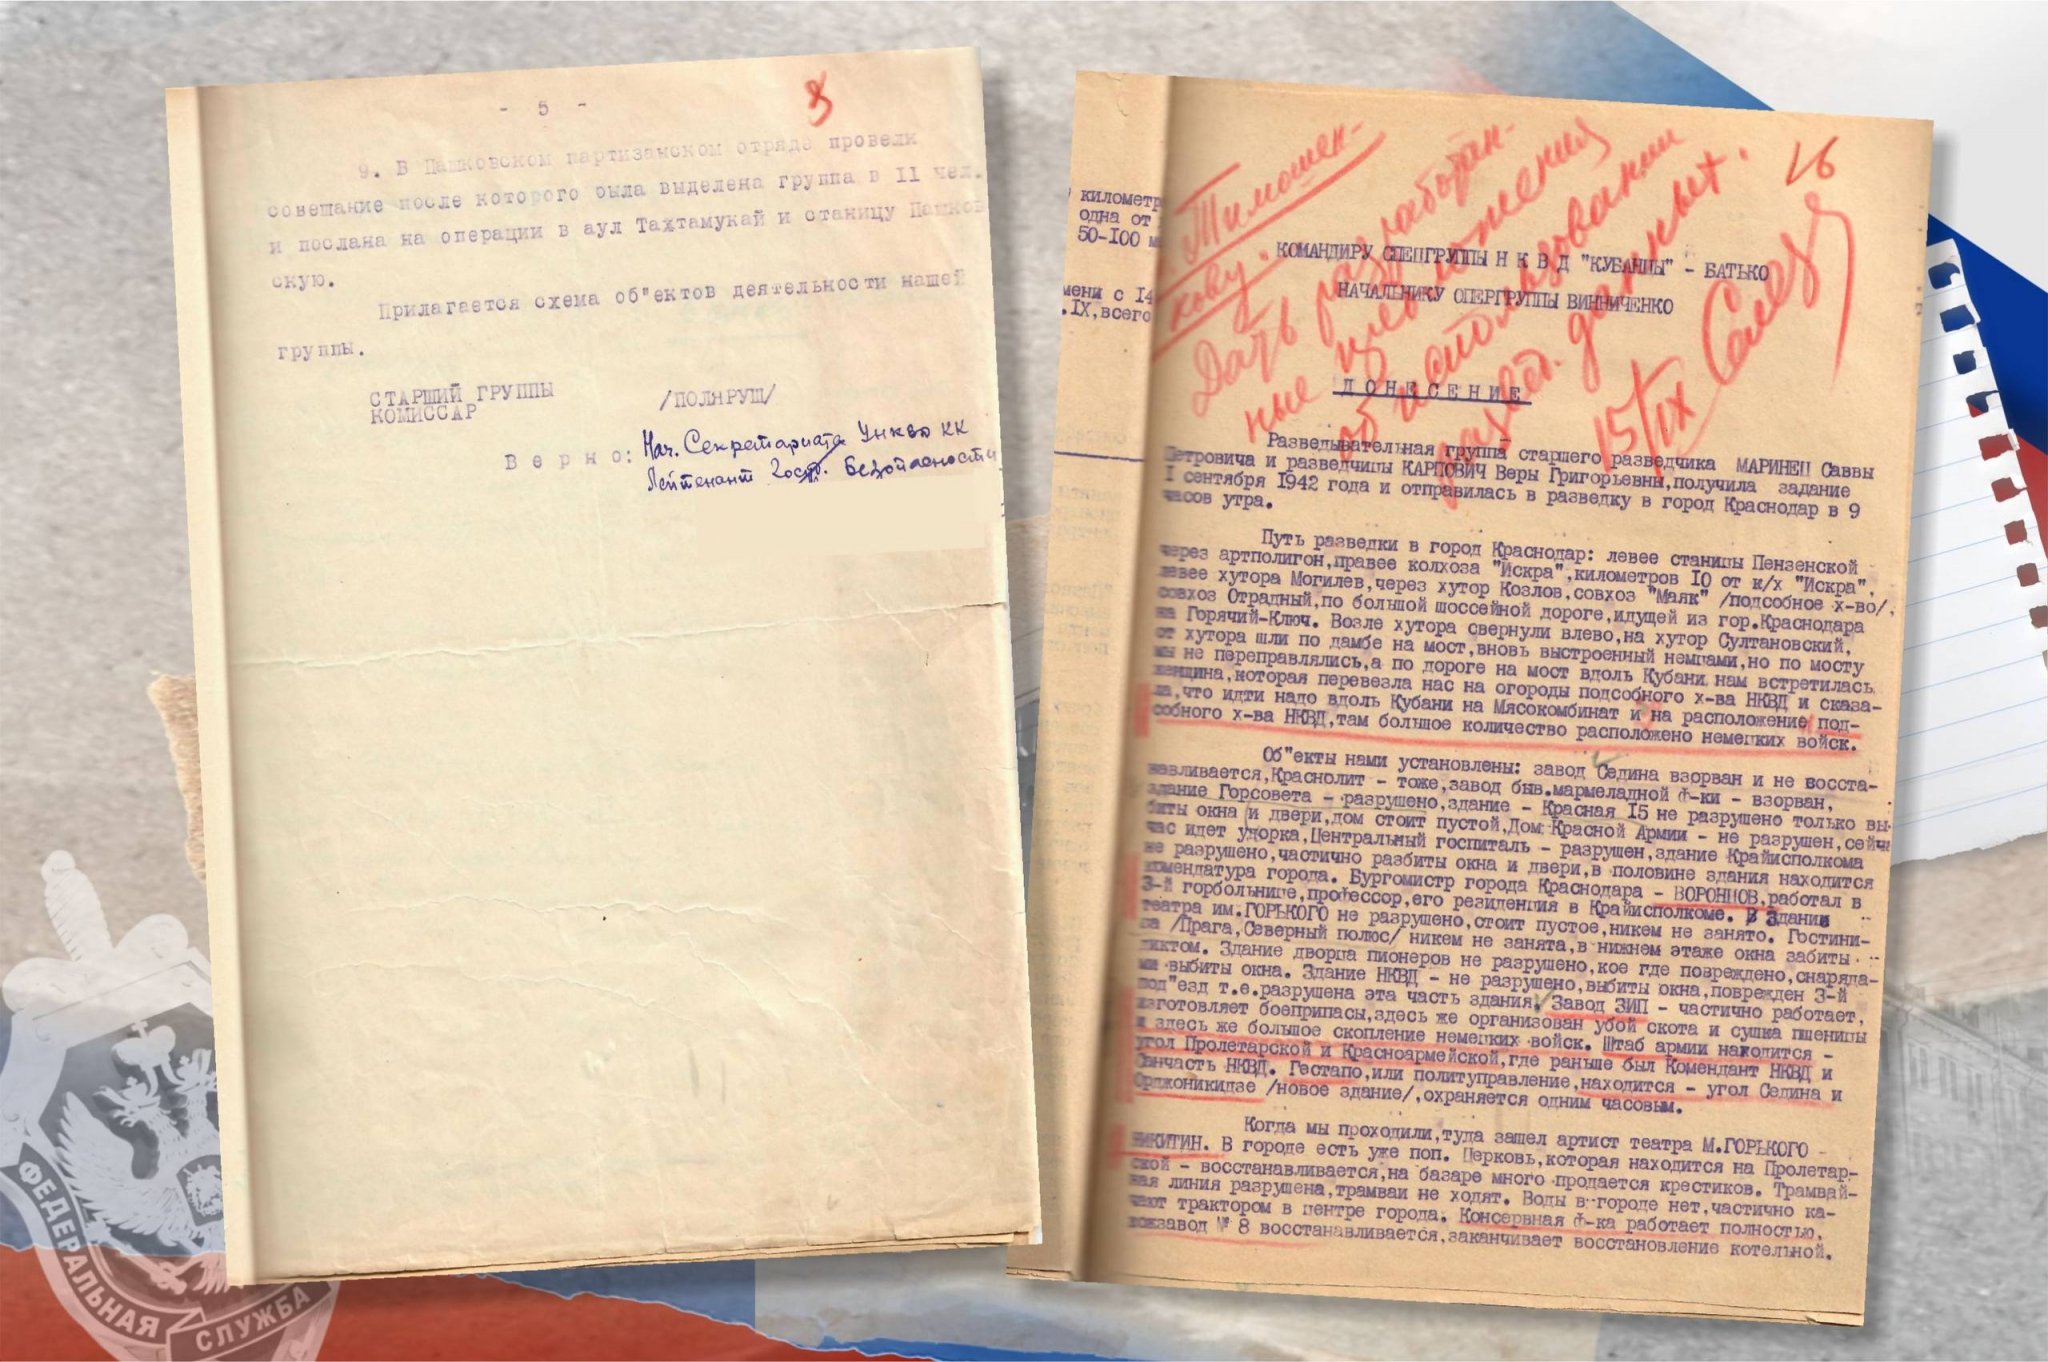 - 5 -
9. В Пашковском партизанском отряде провели
совещание после которого была выделена группа в II чел.
и послана на операции в аул Тахтамукай и станицу Пашков
скую.
Прилагается схема об"ектов деятельности нашей
группы.
СТАРШИЙ ГРУППЫ
КОМИССАР
/ПОЛЯРУШ/
Верно:
Нач. Секретариата УНКВД КК
Лейтенант госуд. безопасности
километр
одна от
50-100 м
мени с 14
.IX,всего
Тимошен-
кову.
Дать разработан-
ные
предложения
об использовании
развед. данных.
15/IX
26
КОМАНДИРУ СПЕЦГРУППЫ Н К В Д "КУБАНЦЫ" - БАТЬКО
НАЧАЛЬНИКУ ОПЕРГРУППЫ ВИННИЧЕНКО
ДОНЕСЕНИЕ
Разведывательная группа старшего разведчика МАРИНЕЦ Саввы
Петровича и разведчицы КАРПОВИЧ Веры Григорьевны,получила задание
I сентября 1942 года и отправилась в разведку в город Краснодар в 9
часов утра.
Путь разведки в город Краснодар: левее станицы Пензенской
через артполигон,правее колхоза "Искра",километров IO от к/х "Искра",
левее хутора Могилев,через хутор Козлов,совхоз "Маяк" /подсобное х-во/,
совхоз Отрадный,по большой шоссейной дороге,идущей из гор.Краснодара
на Горячий-Ключ. Возле хутора свернули влево,на хутор Султановский,
от хутора шли по дамбе на мост,вновь выстроенный немцами,но по мосту
мы не переправлялись,а по дороге на мост вдоль Кубани нам встретилась
женщина,которая перевезла нас на огороды подсобного х-ва НКВД и сказа-
ла,что идти надо вдоль Кубани на Мясокомбинат и на расположение под-
собного х-ва НКВД,там большое количество расположено немецких войск.
Об"екты нами установлены: завод Седина взорван и не восста-
навливается,Краснолит - тоже,завод быв.мармеладной ф-ки - взорван,
здание Горсовета - разрушено,здание - Красная I5 не разрушено только вы-
биты окна и двери,дом стоит пустой,Дом Красной Армии - не разрушен,сейч
час идет уборка,Центральный госпиталь - разрушен,здание Крайисполкома
не разрушено,частично разбиты окна и двери,в половине здания находится
комендатура города. Бургомистр города Краснодара - ВОРОНЦОВ,работал в
3-й горбольнице,профессор,его резиденция в Крайисполкоме. В здании
театра им.ГОРЬКОГО не разрушено,стоит пустое,никем не занято. Гостини-
ца /Прага,Северный полюс/ никем не занята,в нижнем этаже окна забиты
диктом. Здание дворца пионеров не разрушено,кое где повреждено,снаряда-
ми выбиты окна. Здание НКВД - не разрушено,выбиты окна,поврежден 3-й
под"езд т.е.разрушена эта часть здания. Завод ЗИП - частично работает,
изготовляет боеприпасы,здесь же организован убой скота и сушка пшеницы
и здесь же большое скопление немецких войск. Штаб армии находится -
угол Пролетарской и Красноармейской,где раньше был Комендант НКВД и
Санчасть НКВД. Гестапо,или политуправление,находится - угол Седина и
Орджоникидзе /новое здание/,охраняется одним часовым.
Когда мы проходили,туда зашел артист театра М.ГОРЬКОГО -
НИКИТИН. В городе есть уже поп. Церковь,которая находится на Пролетар-
ской - восстанавливается,на базаре много продается крестиков. Трамвай-
ная линия разрушена,трамваи не ходят. Воды в городе нет,частично ка-
чают трактором в центре города. Консервная ф-ка работает полностью,
кожзавод № 8 восстанавливается,заканчивает восстановление котельной.
ФЕДЕРАЛЬНАЯ СЛУЖБА